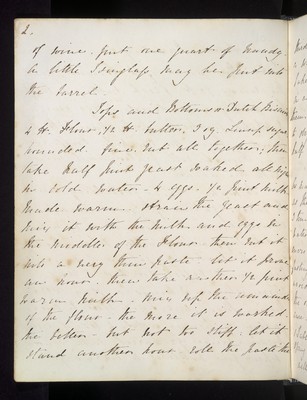 2.
of wine. put one quart of Brandy
A little Isinglass may be put into
the barrel.
Tops and Bottoms or Dutch Biscuits
4 lb Flour. ½ lb butter. 3 oz Lump sugar
pounded fine. rub all together, then
take half pint yeast soaked all night
in cold water - 4 eggs. ½ pint milk
made warm. strain the yeast and
mix it with the milk and eggs in
the middle of the flour. then rub it
into a very thin paste let it prove
an hour. then take another ½ pint
warm milk. mix up the remainder
of the flour. the more it is worked
the better - but not too stiff. let it
stand another hour. roll the paste the